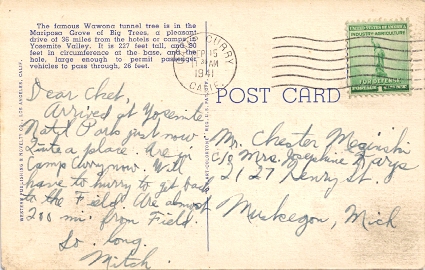 The famous Wawona tunnel tree is in the
Mariposa Grove of Big Trees, a pleasant
drive of 36 miles from the hotels or camps in
Yosemite Valley. It is 227 feet tall, and 90
feet in circumference at the base, and the
hole, large enough to permit passenger
vehicles to pass through, 26 feet.
CURRY
SEP 15
AM
1941
CALIF.
UNITED STATES OF AMERICA
INDUSTRY-AGRICULTURE
FOR DEFENSE
POST CARD
WESTERN PUBLISHING & NOVELTY CO., LOS ANGELES, CALIF.
Dear Chet,
Arrived at Yosemite
Natl Park just now
Quite a place. Are in
Camp Curry now. Will
have to hurry to get back
to the Field. Are almost
200 mi. from Field.
So long.
Mitch.
Mr. Chester
c/o Mrs. Josephine
2127 Henry St.
Muskegon, Mich